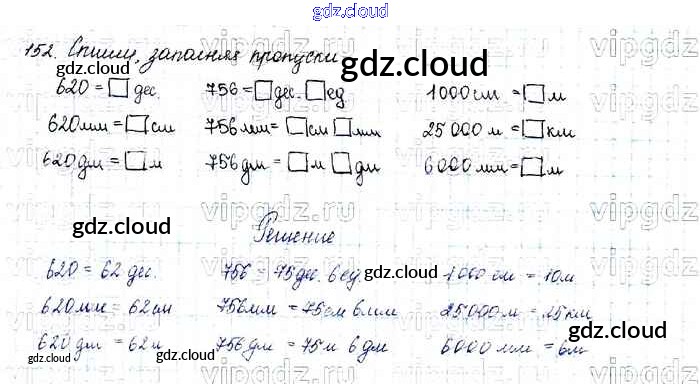 gdz.cloud
152. Спиши, заполняя пропуски
gdz.cloud
620 = □ дес. 756 = □ дес. □ ед 1000 см = □ м
620 мм = □ см 756 мм = □ см □ мм 25 000 м = □ км
620 дм = □ м 756 дм = □ м □ дм 6000 мм = □ м
gdz.cloud
Решение
620 = 62 дес. 756 = 75 дес. 6 ед. 1000 см = 10 м
gdz.cloud
620 мм = 62 см 756 мм = 75 см 6 мм 25000 м = 25 км
gdz.cloud gdz.cloud
620 дм = 62 м 756 дм = 75 м 6 дм 6000 мм = 6 м
gdz.cloud gdz.cloud
vipgdz.ru